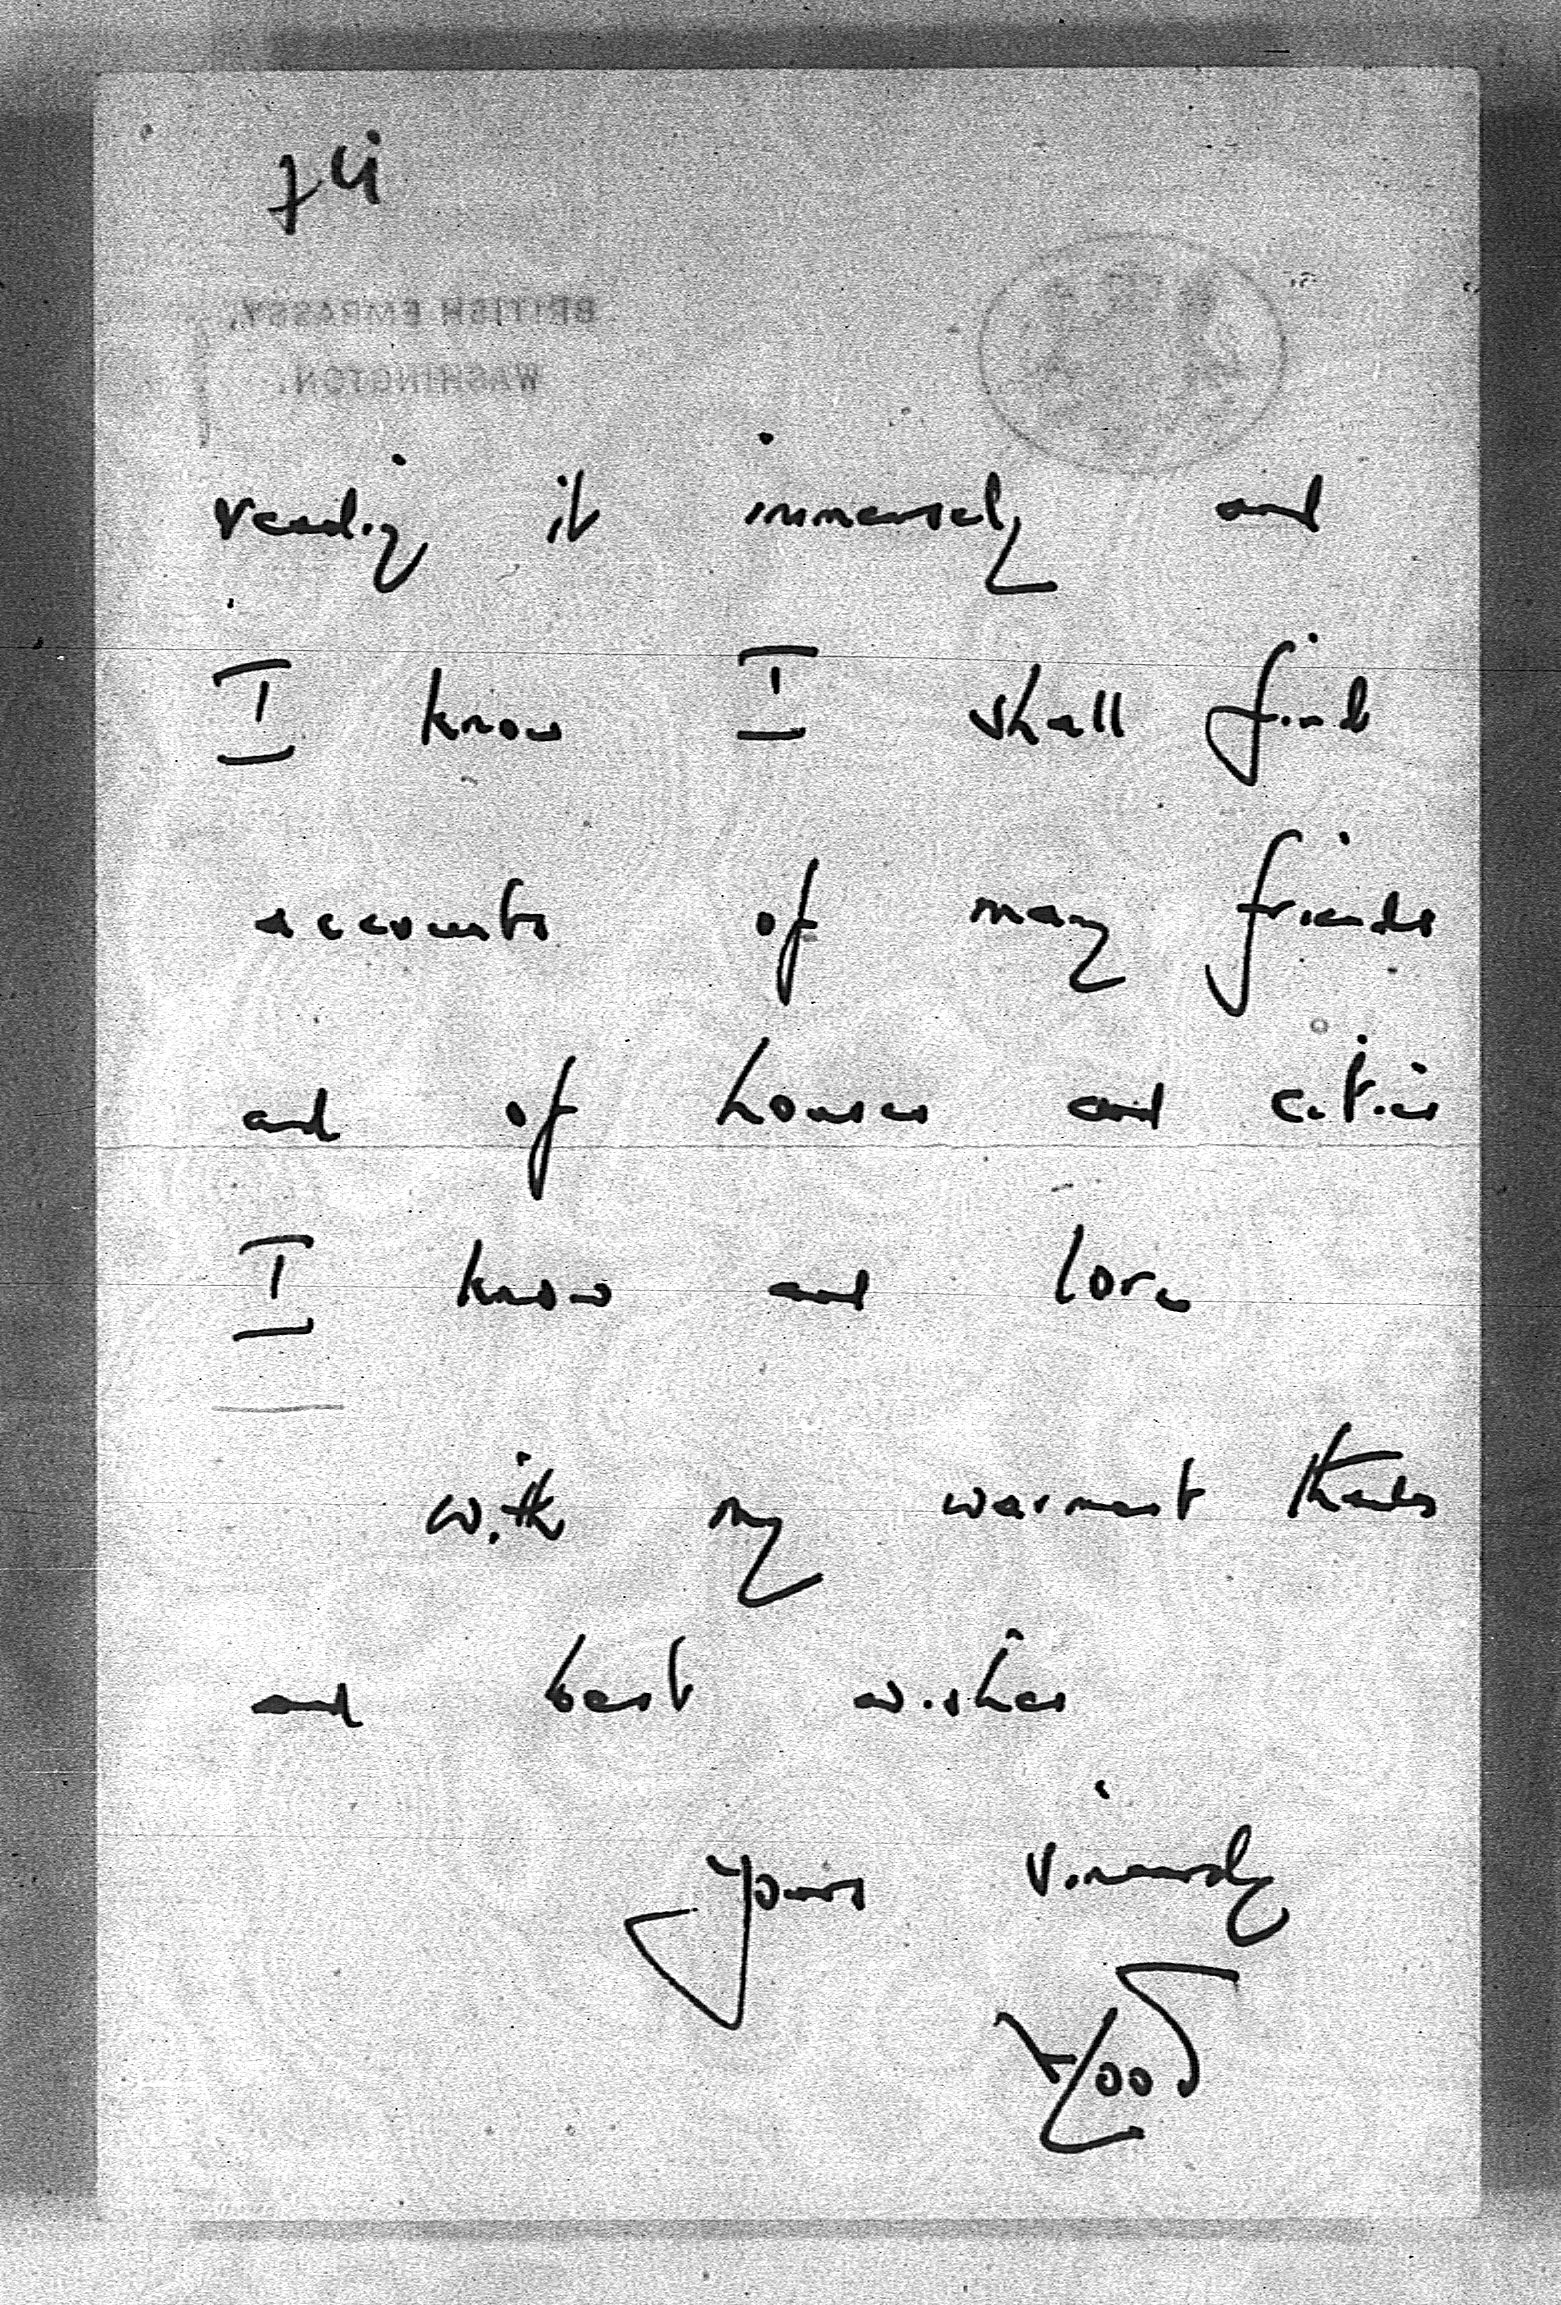 BRITISH EMBASSY,
WASHINGTON.
reading it immensely and
I know I shall find
accounts of many friends
and of houses and cities
I know and love
with my warmest thanks
and best wishes
yours sincerely